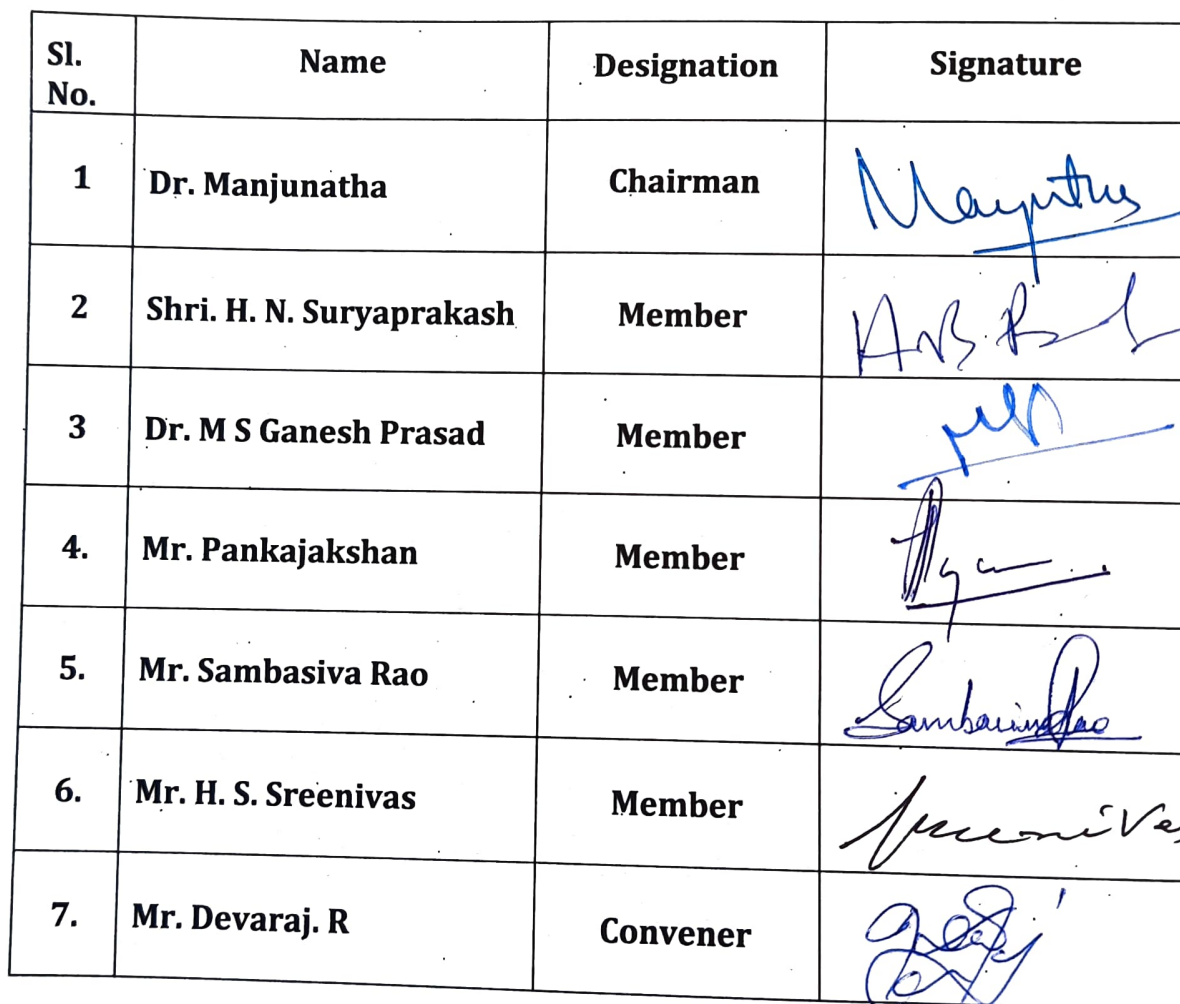 Sl. No. Name Designation Signature
1 Dr. Manjunatha Chairman
2 Shri. H. N. Suryaprakash Member
3 Dr. M S Ganesh Prasad Member
4. Mr. Pankajakshan Member
5. Mr. Sambasiva Rao Member
6. Mr. H. S. Sreenivas Member
7. Mr. Devaraj. R Convener